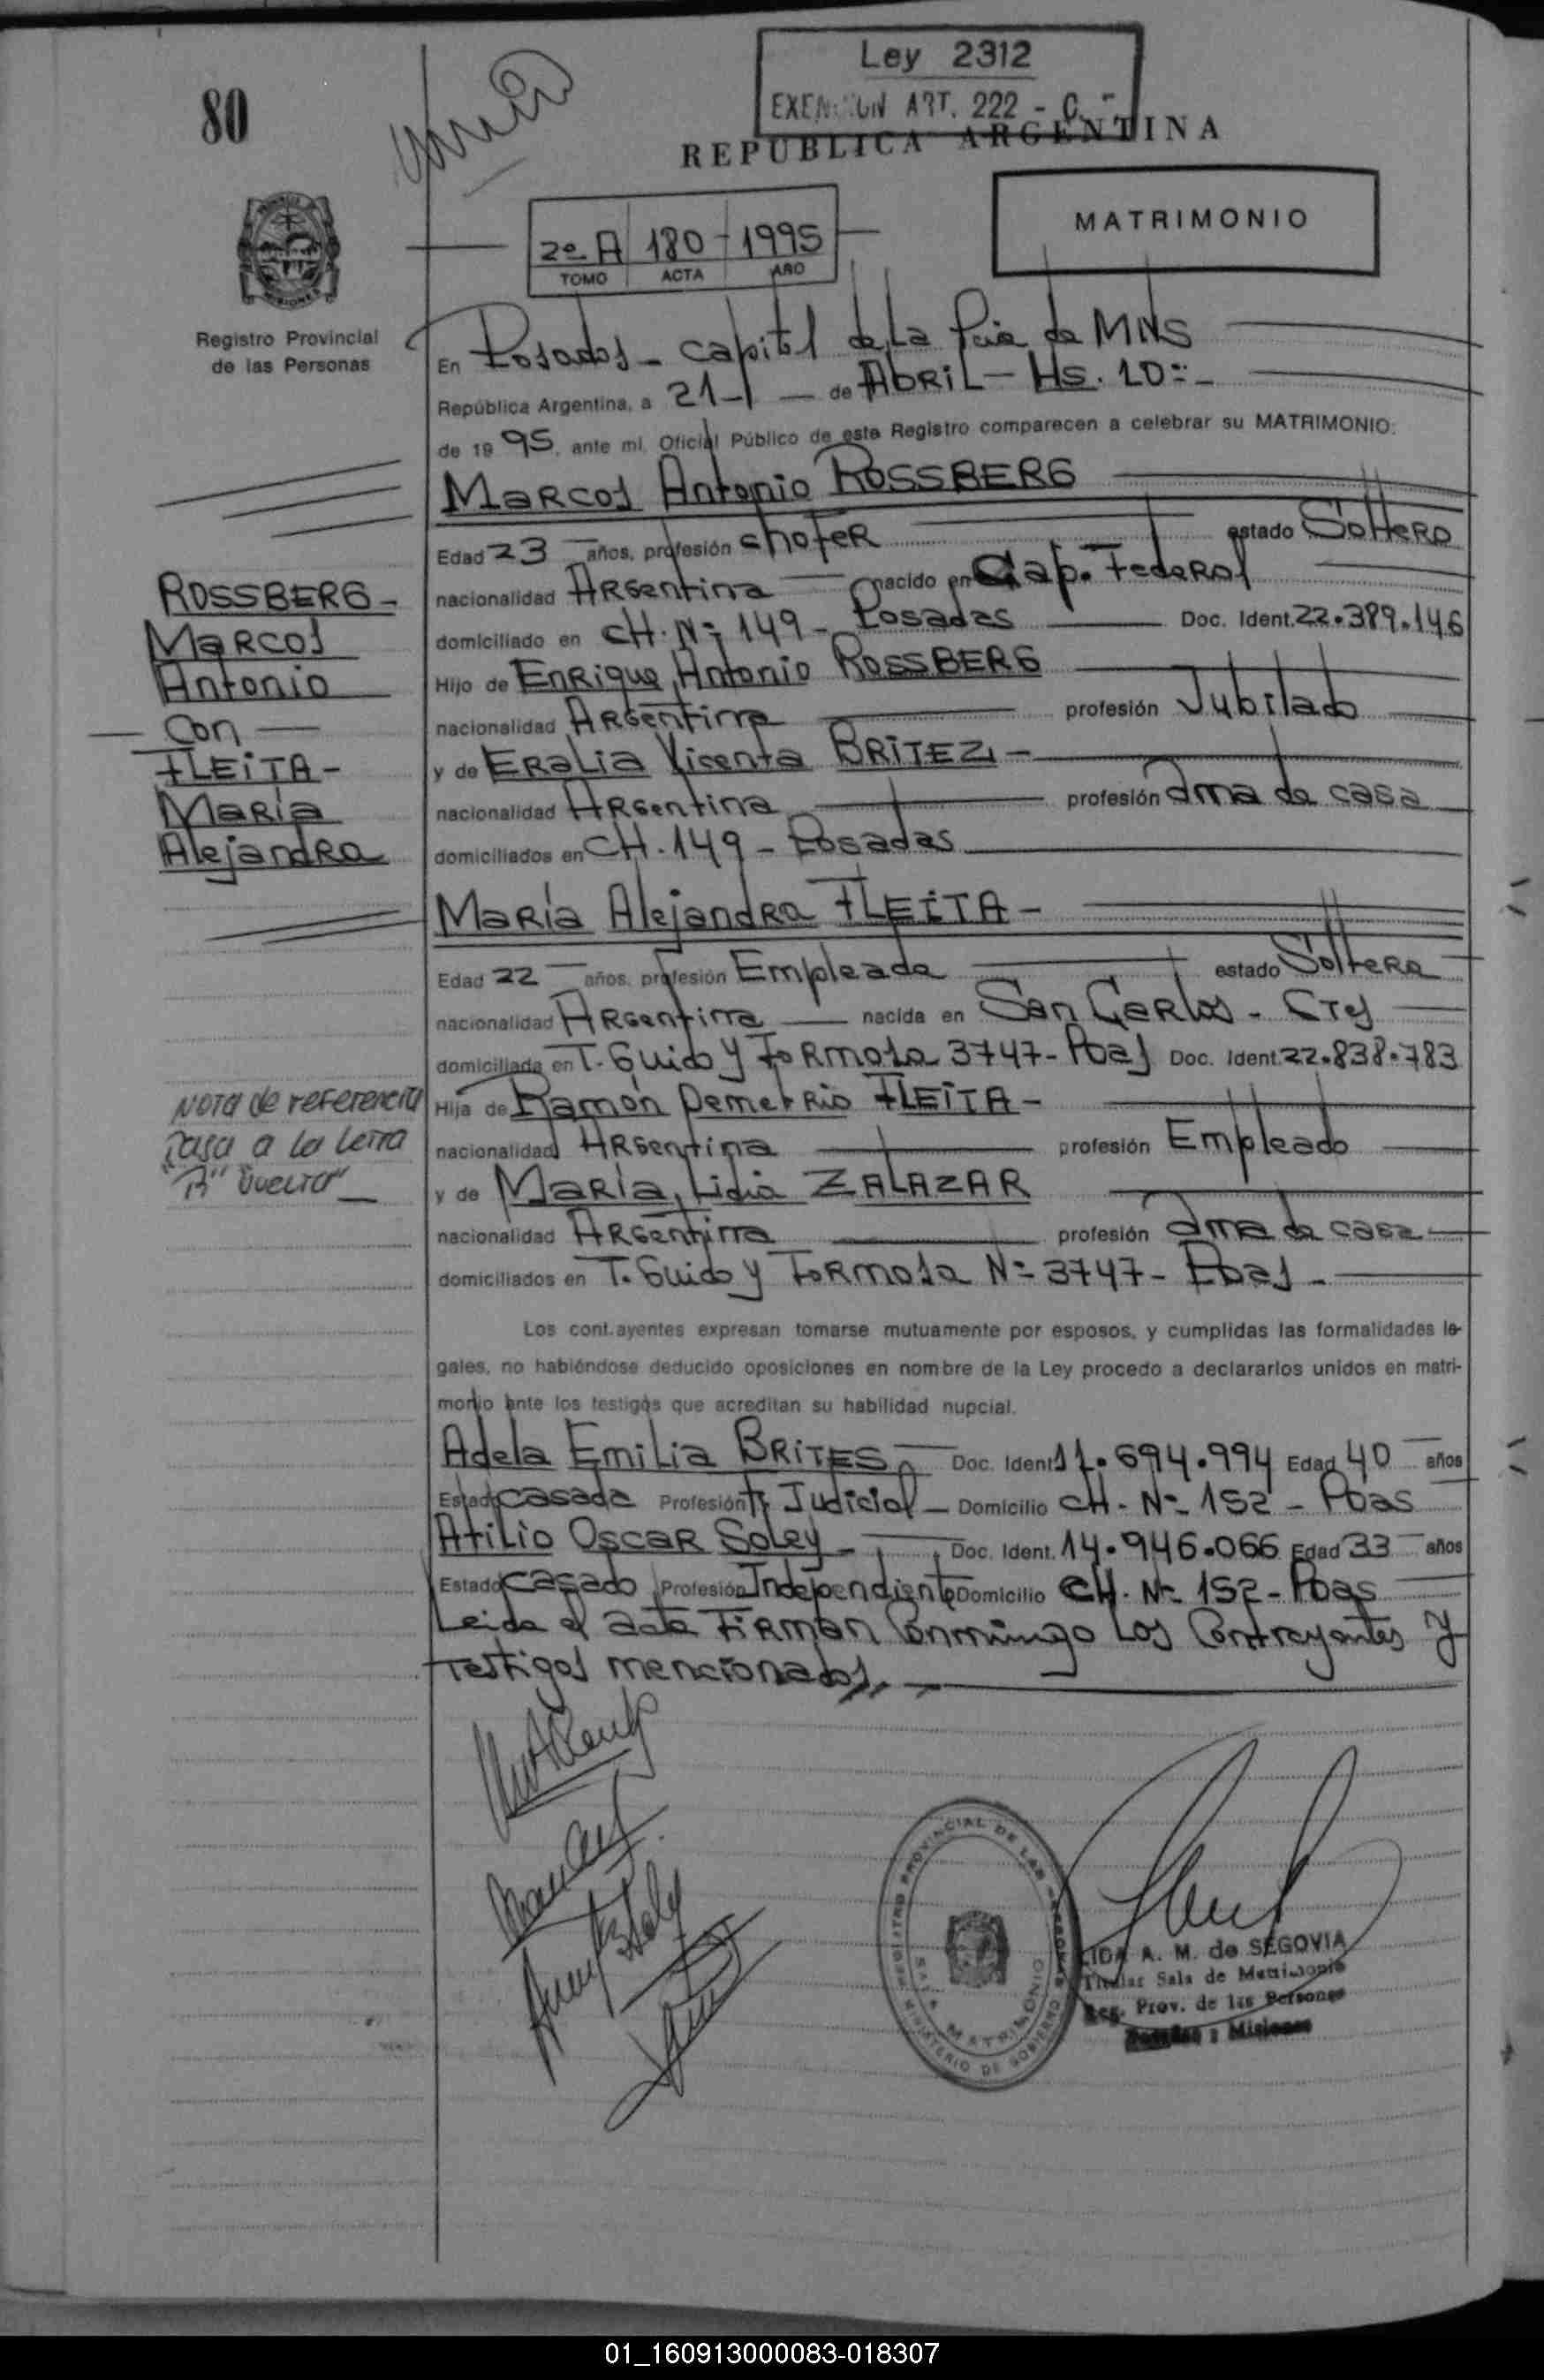 Ley 2312
EXENCION ART. 222 - C.
80
REPUBLICA ARGENTINA
MATRIMONIO
2º A 180 - 1995
TOMO ACTA AÑO
Registro Provincial
de las Personas
En Posadas - capital de La Pcia de MNS
República Argentina, a 21 - de ABRIL - Hs. 10 =
de 1995, ante mi, Oficial Público de este Registro comparecen a celebrar su MATRIMONIO:
Marcos Antonio ROSSBERG
Edad 23 años, profesión chofer estado Soltero
nacionalidad Argentina nacido en Cap. Federal
domiciliado en CH. Nº 149 - Posadas Doc. Ident. 22.389.146
Hijo de Enrique Antonio ROSSBERG
nacionalidad Argentina profesión Jubilado
y de ERALIA Vicenta BRITEZ -
nacionalidad Argentina profesión ama de casa
domiciliados en CH. 149 - Posadas
ROSSBERG -
Marcos
Antonio
- Con -
FLEITA -
María
Alejandra
María Alejandra FLEITA -
Edad 22 años, profesión Empleada estado Soltera
nacionalidad Argentina nacida en San Carlos - Ctes
domiciliada en T. Guido y Formosa 3747 - Pdas Doc. Ident. 22.838.783
Hija de Ramón Demetrio FLEITA -
nacionalidad Argentina profesión Empleado
y de María Lidia ZALAZAR
nacionalidad Argentina profesión ama de casa
domiciliados en T. Guido y Formosa Nº 3747 - Pdas -
Nota de referencia
pasa a la letra
"B" vuelta"
Los contrayentes expresan tomarse mutuamente por esposos, y cumplidas las formalidades le-
gales, no habiéndose deducido oposiciones en nombre de la Ley procedo a declararlos unidos en matri-
monio ante los testigos que acreditan su habilidad nupcial.
Adela Emilia BRITES Doc. Ident 11.694.994 Edad 40 años
Estado casada Profesión T. Judicial - Domicilio CH - Nº 152 - Pdas
Atilio Oscar Soley - Doc. Ident. 14.946.066 Edad 33 años
Estado casado Profesión Independiente Domicilio CH. Nº 152 - Pdas
Leida el acta Firman Conmingo Los Contrayentes y
testigos mencionados,,
REGISTRO PROVINCIAL DE LAS PERSONAS
SALA MATRIMONIO
MINISTERIO DE GOBIERNO
LIDA A. M. de SEGOVIA
Titular Sala de Matrimonio
Reg. Prov. de las Personas
Posadas : Misiones
01_160913000083-018307